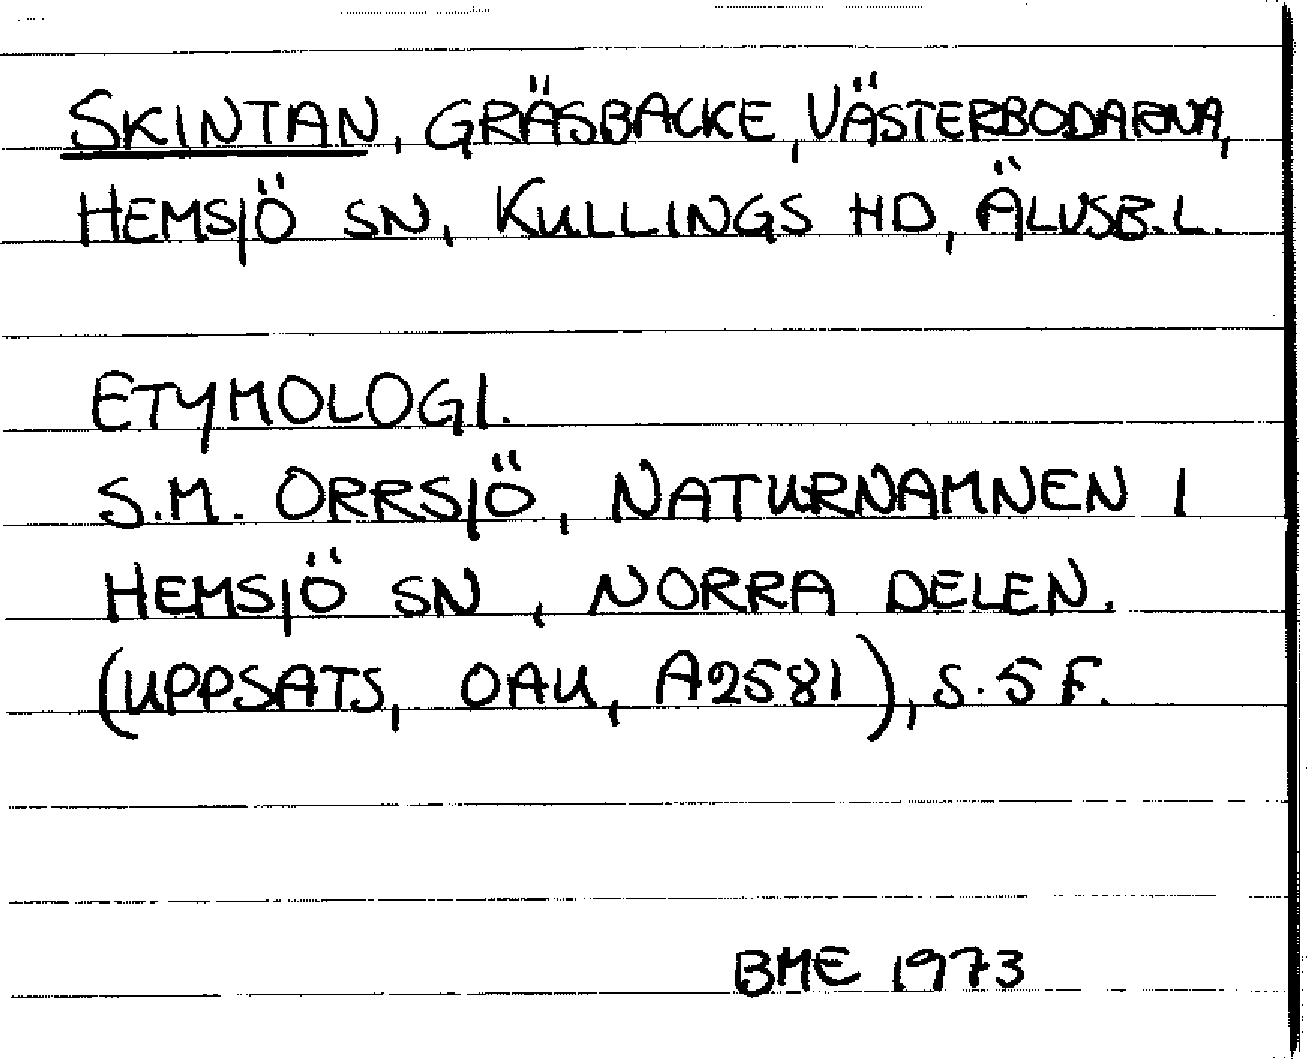 SKINTAN, GRÄSBACKE, VÄSTERBODARNA,
HEMSJÖ SN, KULLINGS HD, ÄLVSB.L.
ETYMOLOGI.
S.M. ORRSJÖ, NATURNAMNEN I
HEMSJÖ SN, NORRA DELEN.
(UPPSATS, OAU, A2581), S. 5 F.
BME 1973